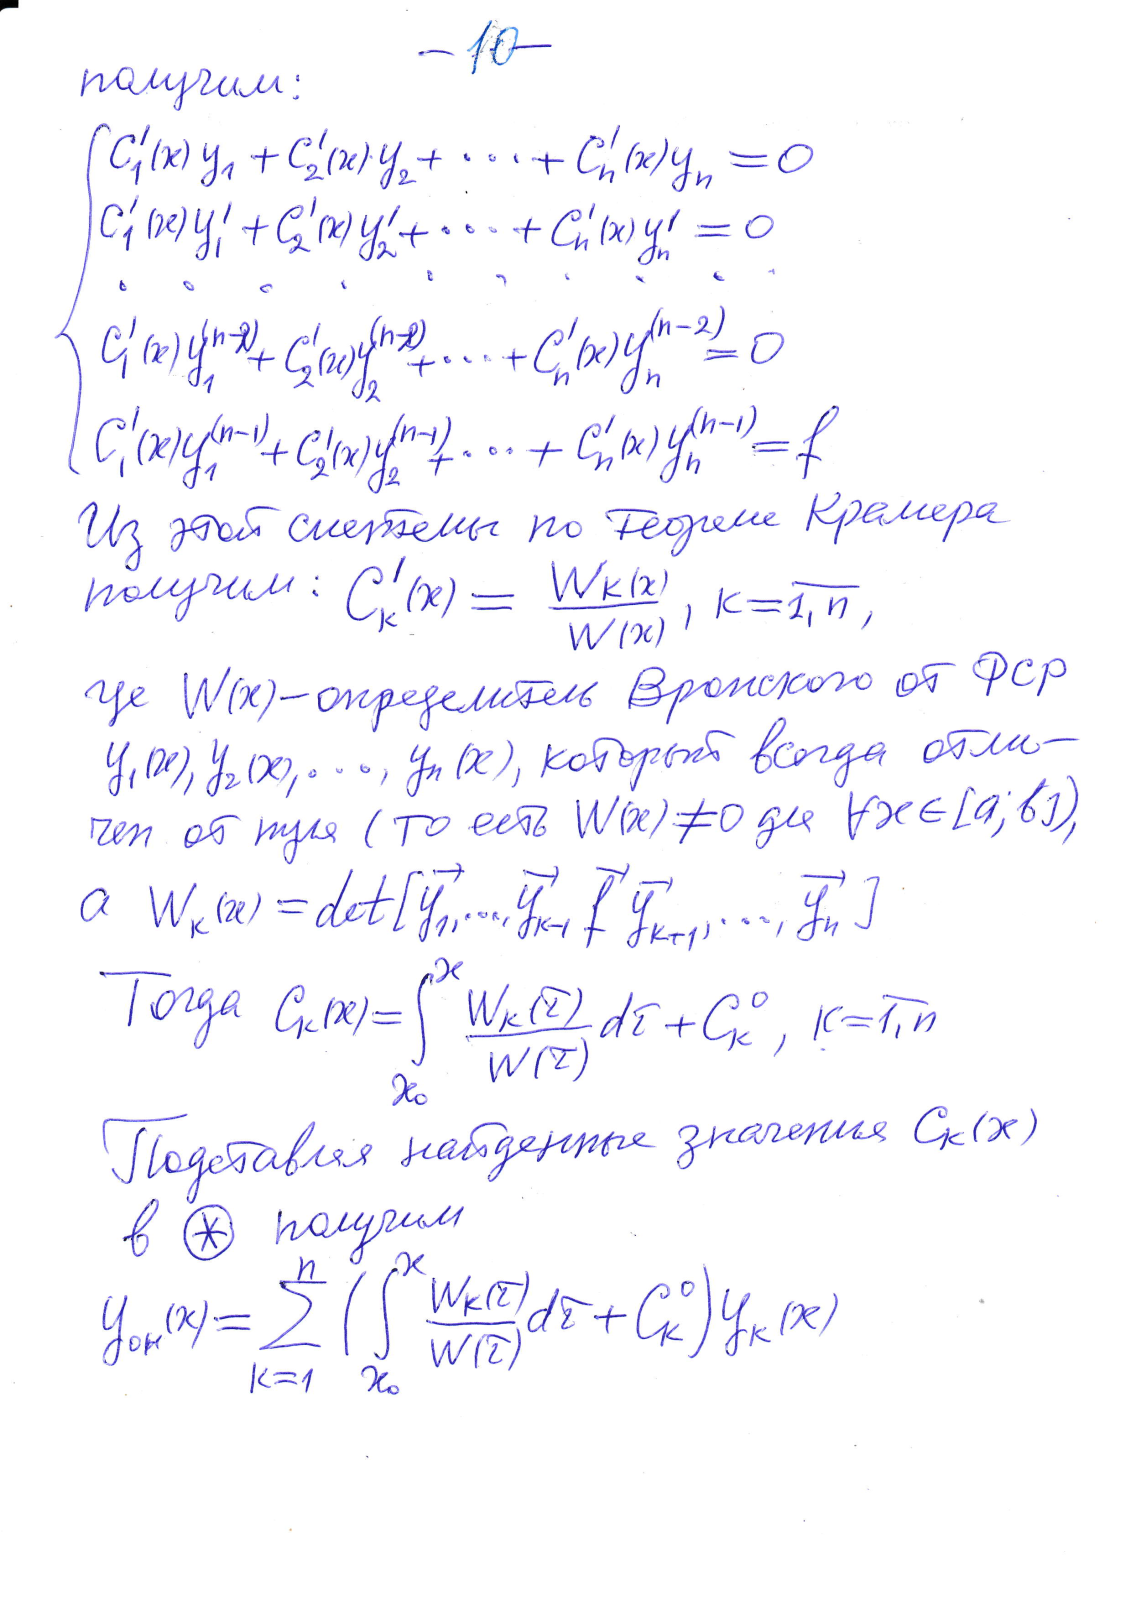 -10-
получим:
C₁'(x)y₁ + C₂'(x)y₂ + ... + Cₙ'(x)yₙ = 0
C₁'(x)y₁' + C₂'(x)y₂' + ... + Cₙ'(x)yₙ' = 0
. . . . . . . . . .
C₁'(x)y₁⁽ⁿ⁻²⁾ + C₂'(x)y₂⁽ⁿ⁻²⁾ + ... + Cₙ'(x)yₙ⁽ⁿ⁻²⁾ = 0
C₁'(x)y₁⁽ⁿ⁻¹⁾ + C₂'(x)y₂⁽ⁿ⁻¹⁾ + ... + Cₙ'(x)yₙ⁽ⁿ⁻¹⁾ = f
Из этой системы по теореме Крамера
получим: Cₖ'(x) = Wₖ(x)/W(x), k = \overline{1,n},
где W(x) – определитель Вронского от ФСР
y₁(x), y₂(x), ..., yₙ(x), который всегда отли-
чен от нуля (то есть W(x) ≠ 0 для ∀x ∈ [a; b]),
а Wₖ(x) = det[\vec{y}₁, ..., \vec{y}ₖ₋₁, \vec{f} \vec{y}ₖ₊₁, ..., \vec{y}ₙ]
Тогда Cₖ(x) = ∫_{x₀}^{x} Wₖ(τ)/W(τ) dτ + Cₖ⁰, k = \overline{1,n}
Подставляя найденные значения Cₖ(x)
в ⊛ получим
y_{он}(x) = ∑_{k=1}^{n} (∫_{x₀}^{x} Wₖ(τ)/W(τ) dτ + Cₖ⁰) yₖ(x)